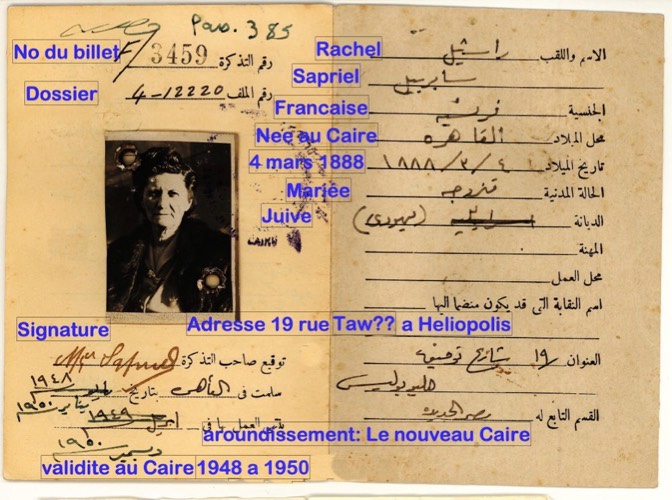 Pas. 385
No du billet F/ 3459 رقم التذكرة
Dossier 4-12220 رقم الملف
Rachel راشيل الاسم واللقب
Sapriel سابرييل
Francaise فرنسية الجنسية
Neé au Caire القاهره محل الميلاد
4 mars 1888 ٤ / ٣ / ١٨٨٨ تاريخ الميلاد
Mariée متزوجه الحالة المدنية
Juive (يهودى) الديانة
CAIRO
المهنة
محل العمل
اسم النقابة التى قد يكون منضما اليها
Adresse 19 rue Taw?? a Heliopolis
Signature
توقيع صاحب التذكرة
العنوان ١٩ شارع توفيق
هليوبوليس
سلمت فى القاهرة بتاريخ ١٩٤٨
يناير ١٩٥٠
القسم التابع له مصر الجديدة
ينتهى العمل بها فى ابريل ١٩٤٩
aroundissement: Le nouveau Caire
ديسمبر ١٩٥٠
validite au Caire 1948 a 1950